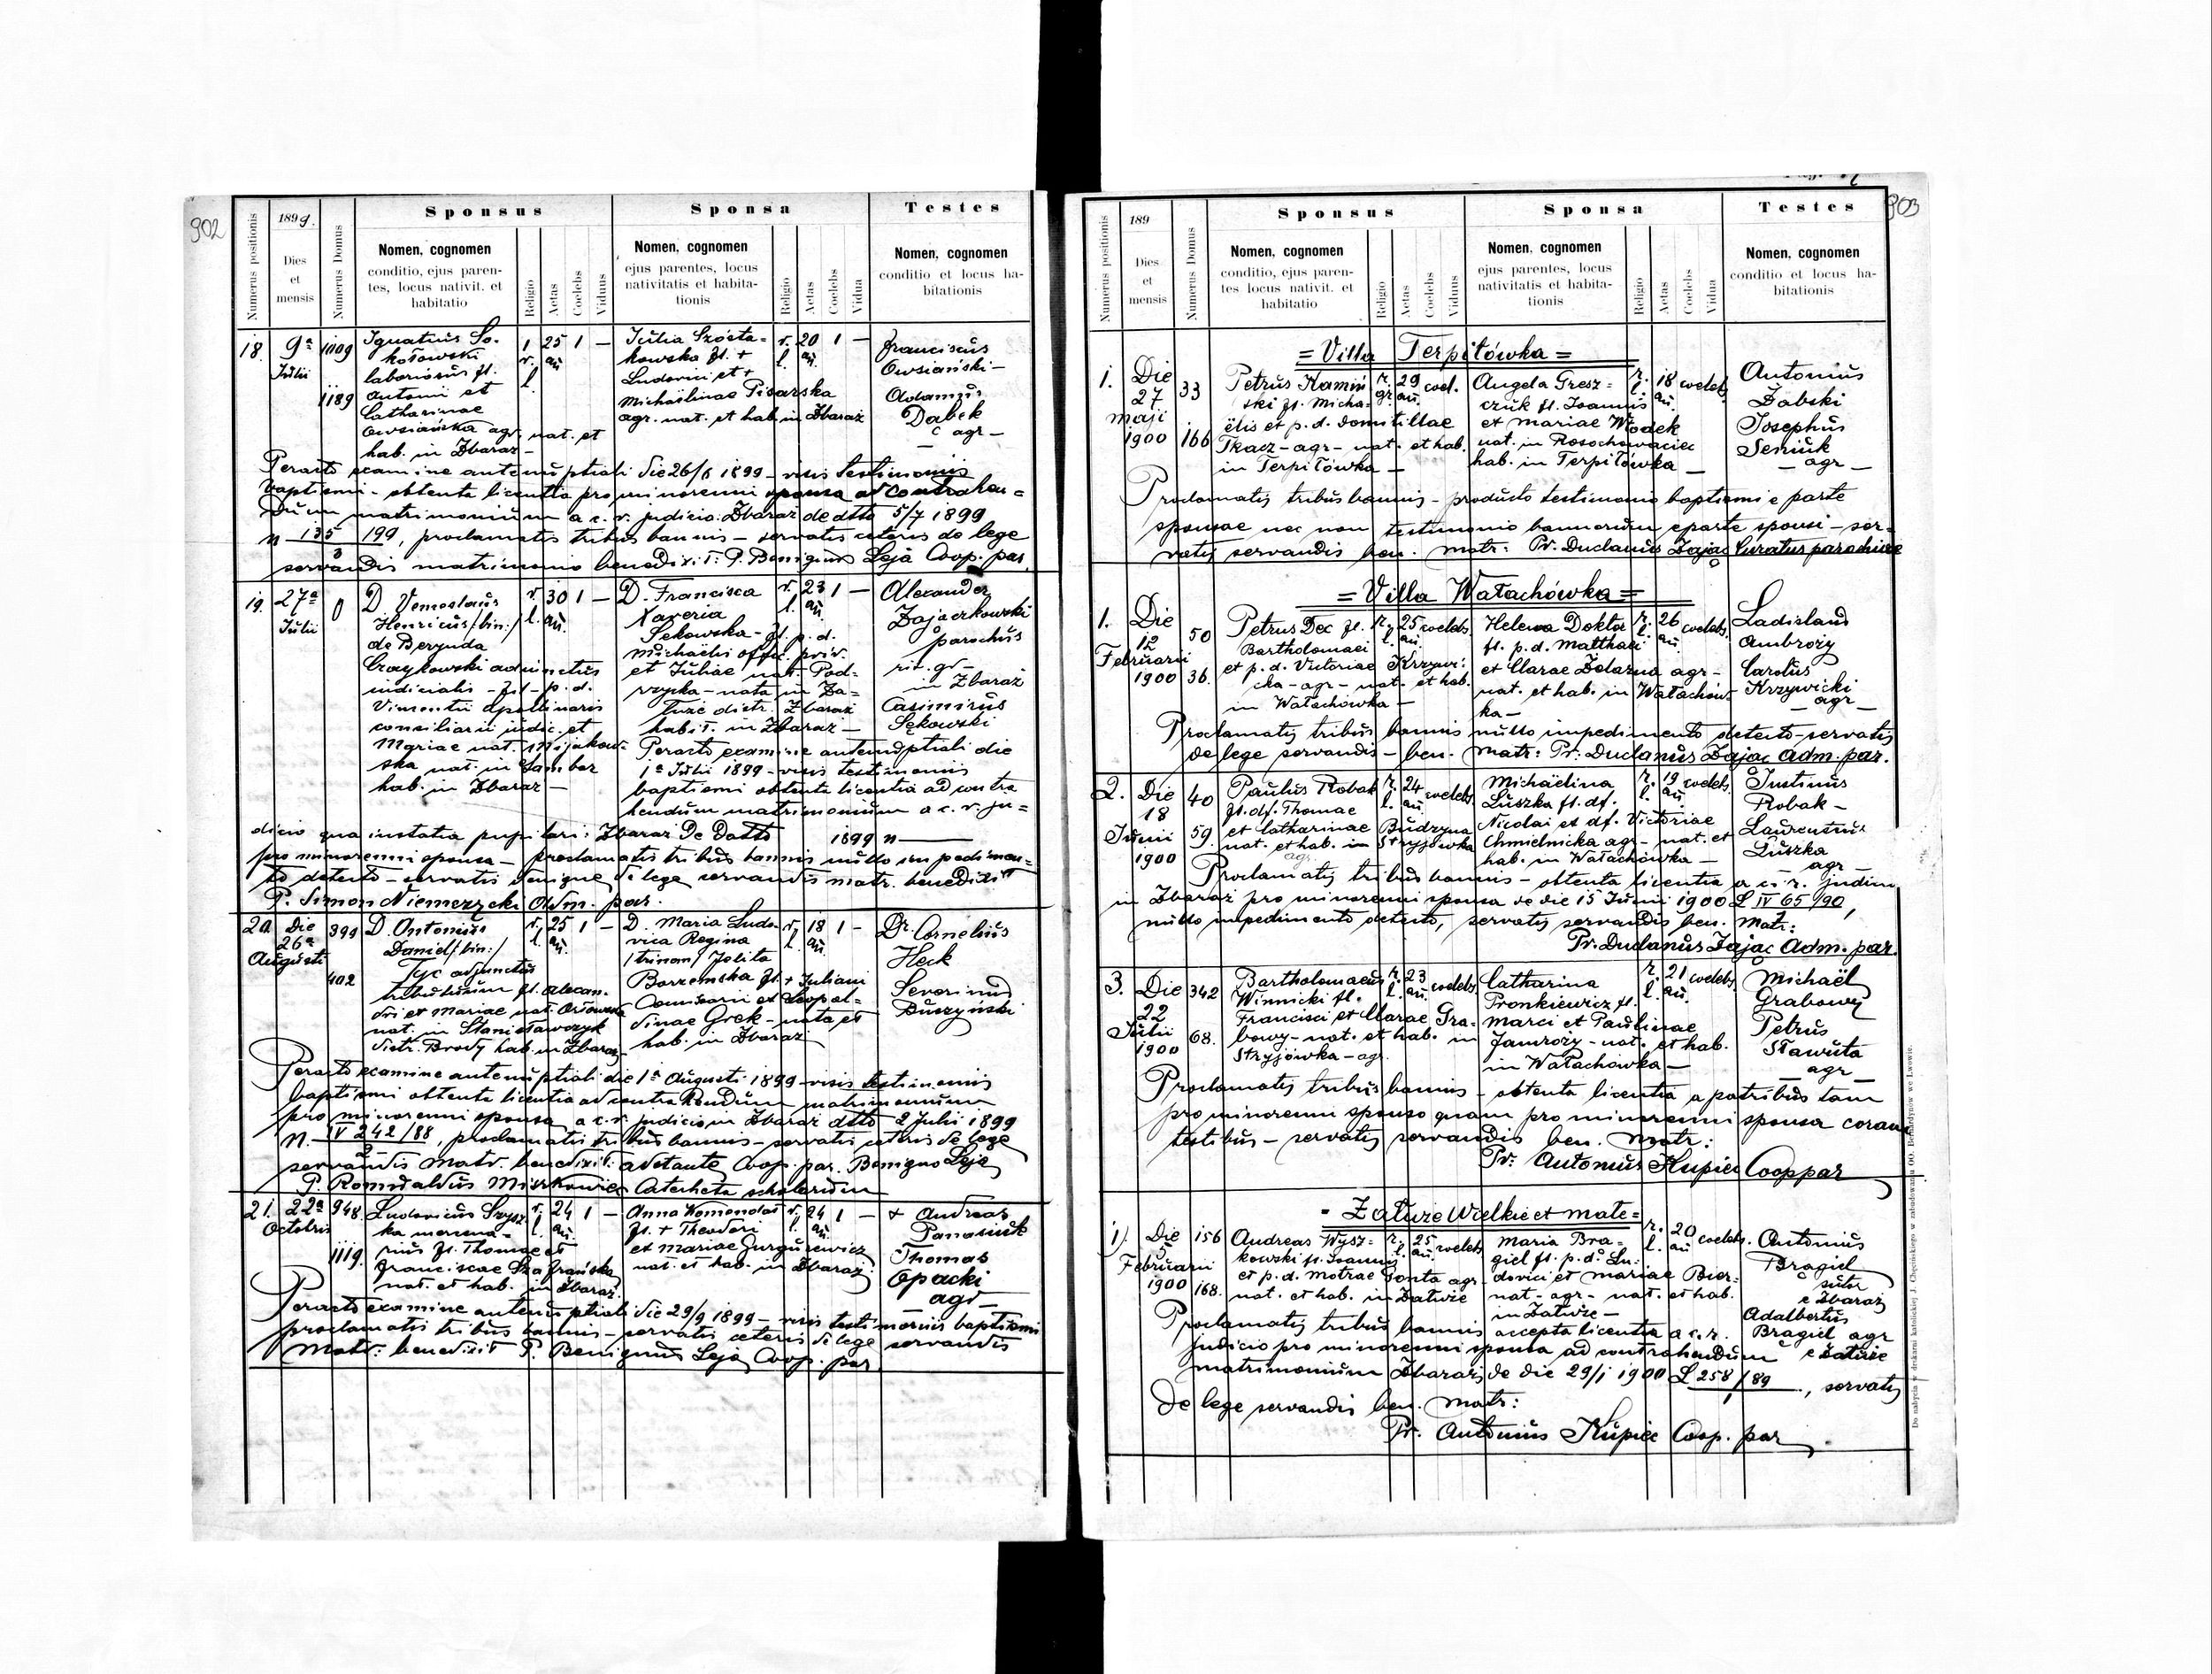 902
1899.
Numerus positionis
Dies
et
mensis
Numerus Domus
Sponsus
Nomen, cognomen
conditio, ejus paren-
tes, locus nativit. et
habitatio
Religio
Aetas
Coelebs
Viduus
Sponsa
Nomen, cognomen
ejus parentes, locus
nativitatis et habita-
tionis
Religio
Aetas
Coelebs
Vidua
Testes
Nomen, cognomen
conditio et locus ha-
bitationis
18. 9a Julii 1109 1189
Ignatius So-
kołowski
laboriosus fl.
Antoni et
Catharinae
Owsiańska agr. nat. et
hab. in Zbaraż —
r. l. 25 an. 1 —
Julia Szósta-
kowska fl. +
Ludovici et +
Michaëlinae Pisarska
agr. nat. et hab. in Zbaraż
r. l. 20 an. 1 —
Franciscus
Owsiański —
Adamus
Dąbek
agr —
Peracto examine antenuptiali die 26/6 1899 — visis testimoniis
baptismi — obtenta licentia pro minorenni sponsa ad contrahen-
dum matrimonium a c. r. judicio Zbaraż de dtto 5/7 1899
n 135/3 199, proclamatis tribus bannis — servatis ceteris de lege
servandis matrimonio benedixit: P. Benignus Leja Coop. par.
19. 27a Julii 0
D. Venceslaus
Henricus /bin:/
de Berynda
Czaykowski adiunctus
iudicialis — fil — p. d.
Vincentii Apollinaris
consiliarii judic. et
Mariae nat. Mijakow-
ska nat. in Sambor
hab. in Zbaraż —
r. l. 30 an. 1 —
D. Francisca
Xaveria
Sękowska — fl. p. d.
Michaëlis offic. priv.
et Juliae nat. Pod-
nata in Za-
łuże distr. Zbaraż
habit. in Zbaraż —
r. l. 23 an. 1 —
Alexander
Zajaczkowski
parochus
rit. gr —
in Zbaraż
Casimirus
Sękowski
Peracto examine antenuptiali die
1a Julii 1899 — visis testimoniis
baptismi obtenta licentia ad contra
hendum matrimonium a c. r. ju-
dicio qua instatia pupilari: Zbaraż De Datto 1899 n —
pro minorenni sponsa — proclamatis tribus bannis nullo impedimen-
to detecto — servatis denique de lege servandis matr. benedixit
P. Simon Niemczycki Adm. par.
20 Die 26a Augusti 399 402
D. Antonius
Daniel /bin:/
Tyc adjunctus
fl. Alexan-
dri et Mariae nat. Orłowska
nat. in Stanisławczyk
distr. Brody hab. in Zbaraż
r. l. 25 an. 1 —
D. Maria Ludo-
vica Regina
/trinom/ Jolita
Borzemska fl. + Juliani
et Leopol-
dinae Grek — nata et
hab. in Zbaraż
r. l. 18 an. 1 —
Dr. Cornelius
Heck
Severinus
Duszyński
Peracto examine antenuptiali die 1a Augusti 1899 — visis testimoniis
baptismi obtenta licentia ad contrahendum matrimonium
pro minorenni sponsa a c. r. judicio in Zbaraż dtto 2 Julii 1899
n. IV 242/88, proclamatis tribus bannis — servatis ceteris de lege
servandis Matr. benedixit: adstante Coop. par. Benigno Leja
P. Romualdus Miszkowiec Catecheta scholarum
21. 22a Octobris 948. 1119.
Ludovicus Szysz
ka
fl. Thomae et
Franciscae Szafrańska
nat. et hab. in Zbaraż.
r. l. 24 an. 1 —
Anna Komendat
fl. + Theodori
et Mariae Jurgurewicz
nat. et hab. in Zbaraż
r. l. 24 an. 1 —
+ Andreas
Panasiuk
Thomas
Opacki
agr —
Peracto examine antenuptiali die 29/9 1899 — visis testimoniis baptismi
proclamatis tribus bannis — servatis ceteris de lege servandis
Matr: benedixit P. Benignus Leja Coop. par.
903
189
Numerus positionis
Dies
et
mensis
Numerus Domus
Sponsus
Nomen, cognomen
conditio, ejus paren-
tes locus nativit. et
habitatio
Religio
Aetas
Coelebs
Viduus
Sponsa
Nomen, cognomen
ejus parentes, locus
nativitatis et habita-
tionis
Religio
Aetas
Coelebs
Vidua
Testes
Nomen, cognomen
conditio et locus ha-
bitationis
= Villa Terpiłówka =
1. Die 27 Maji 1900 33 166
Petrus Kamiń
ski fl. Micha-
ëlis et p. d. Domitillae
Tkacz — agr — nat. et hab.
in Terpiłówka —
r. gr. 29 an. coel.
Angela Gresz-
czuk fl. Joannis
et Mariae Włodek
nat. in Rosochowaciec
hab. in Terpiłówka —
r. l. 18 an. coelebs.
Antonius
Żabski
Josephus
Seniuk
— agr —
Proclamatis tribus bannis — producto testimonio baptismi e parte
sponsae nec non testimonio bannorum e parte sponsi — ser-
vatis servandis ben. matr: Pr. Duclanus Zając Curatus parochiae
= Villa Wałachówka =
1. Die 12 Februarii 1900 50 36.
Petrus Dec fl.
Bartholomaei
et p. d. Victoriae Krzywi-
cka — agr — nat. et hab.
in Wałachówka —
r. l. 25 an. coelebs.
Helena Dokta
fl. p. d. Matthaei
et Clarae Żelazna agr —
nat. et hab. in Wałachów-
ka —
r. l. 26 an. coelebs.
Ladislaus
Ambroży
Carolus
Krzywicki
— agr —
Proclamatis tribus bannis nullo impedimento detecto — servatis
de lege servandis — ben. Matr: Pr: Duclanus Zając Adm. par.
2. Die 18 Junii 1900 40 59.
Paulus Robak
fl. df. Thomae
et Catharinae Budzyna
nat. et hab. in Stryjówka
agr.
r. l. 24 an. coelebs.
Michaëlina
Łuszka fl. df.
Nicolai et df. Victoriae
Chmielnicka agr — nat. et
hab. in Wałachówka —
r. l. 19 an. coelebs.
Justinus
Robak —
Laurentius
Łuszka
agr —
Proclamatis tribus bannis — obtenta licentia a c. r. judicio
in Zbaraż pro minorenni sponsa de die 15 Junii 1900 L IV 65/90,
nullo impedimento detecto, servatis servandis ben. Matr:
Pr. Duclanus Zając Adm. par.
3. Die 22 Julii 1900 342 68.
Bartholomaeus
Winnicki fl.
Francisci et Clarae Gra-
bowy — nat. et hab. in
Stryjówka — agr.
r. l. 23 an. coelebs.
Catharina
Pronkiewicz fl.
Marci et Paulinae
Jamroży — nat. et hab.
in Wałachówka —
r. l. 21 an. coelebs.
Michaël
Grabowy
Petrus
Sławuta
— agr —
Proclamatis tribus bannis — obtenta licentia a patribus tam
pro minorenni sponso quam pro minorenni sponsa coram
testibus — servatis servandis ben. Matr:
Pr. Antonius Kupiec Coop par
= Załuże Wielkie et małe =
1) Die 5 Februarii 1900 156 168.
Andreas Wysz-
kowski fl. Joannis
et p. d. Motrae Gonta agr
nat. et hab. in Załuże
r. l. 25 an. coelebs
Maria Bra-
giel fl. p. d. Lu-
dovici et Mariae Bier-
nat — agr — nat. et hab.
in Załuże —
r. l. 20 an coelebs.
Antonius
Bragiel
sutor
e Zbaraż
Adalbertus
Bragiel agr
e Załuże
Proclamatis tribus bannis accepta licentia a c. r.
judicio pro minorenni sponsa ad contrahendum
matrimonium Zbaraż de die 29/1 1900 L 258/1 /89, servatis
de lege servandis ben. Matr:
Pr. Antonius Kupiec Coop. par
Do nabycia w drukarni katolickiej J. Chęcińskiego w zabudowaniu OO. Bernardynów we Lwowie.